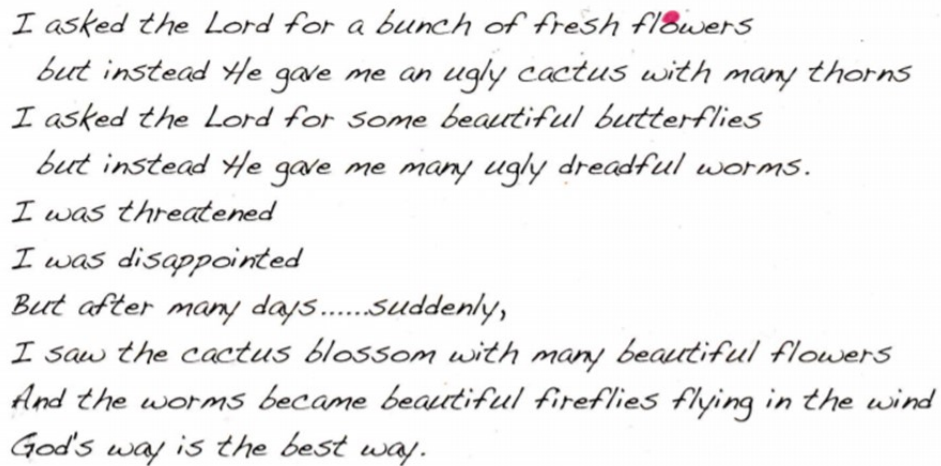 I asked the Lord for a bunch of fresh flowers
but instead He gave me an ugly cactus with many thorns
I asked the Lord for some beautiful butterflies
but instead He gave me many ugly dreadful worms.
I was threatened
I was disappointed
But after many days......suddenly,
I saw the cactus blossom with many beautiful flowers
And the worms became beautiful fireflies flying in the wind
God's way is the best way.